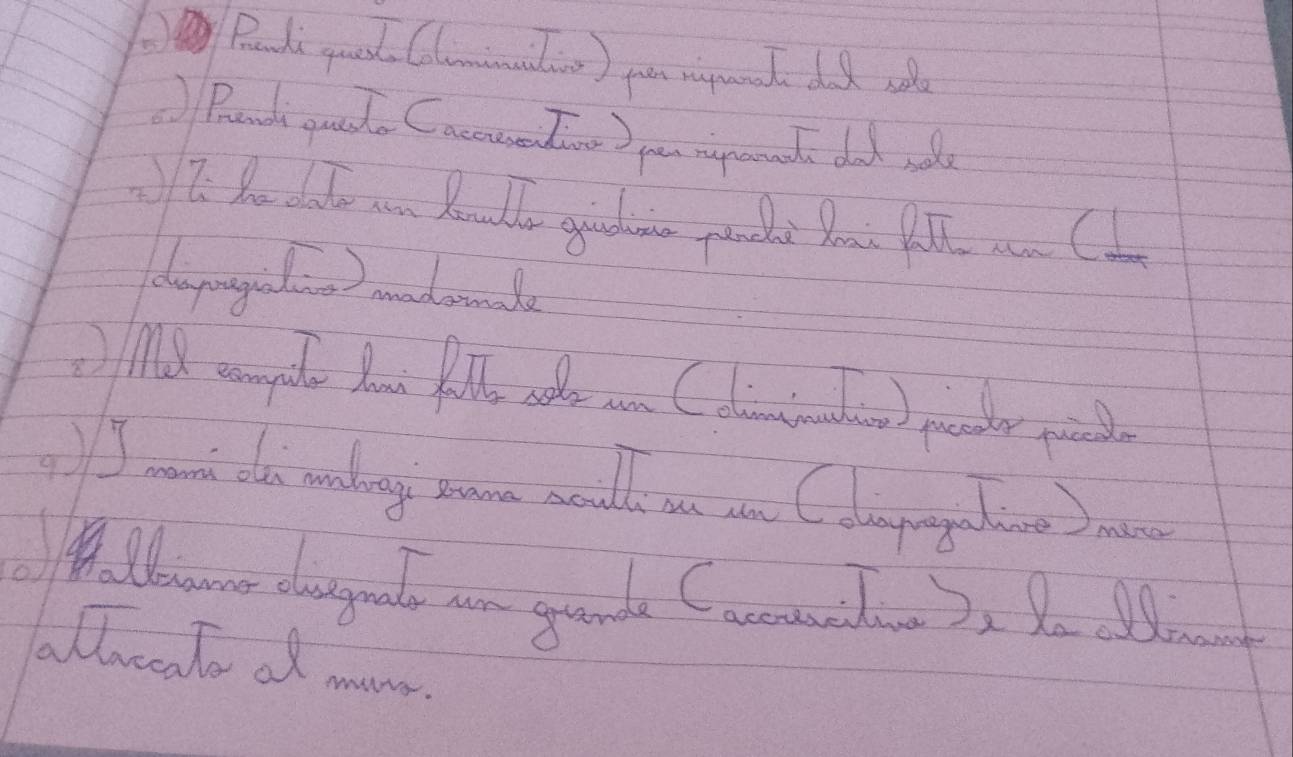 5) Prendi questo (diminuitivo) per ripararti dal sole
6) Prendi questo (accrescitivo) per ripararti dal sole
7) Ti ho dato un brutto giudizio perchè hai fatto un (
dispregiativo) madornale
8) Nel compito hai fatto solo un (diminuitivo) piccolo piccolo
9) I nomi dei malvagi erano scritti su un (dispregiativo) nero
10) abbiamo disegnato un grande (accrescitivo) e lo abbiamo
attaccato al muro.